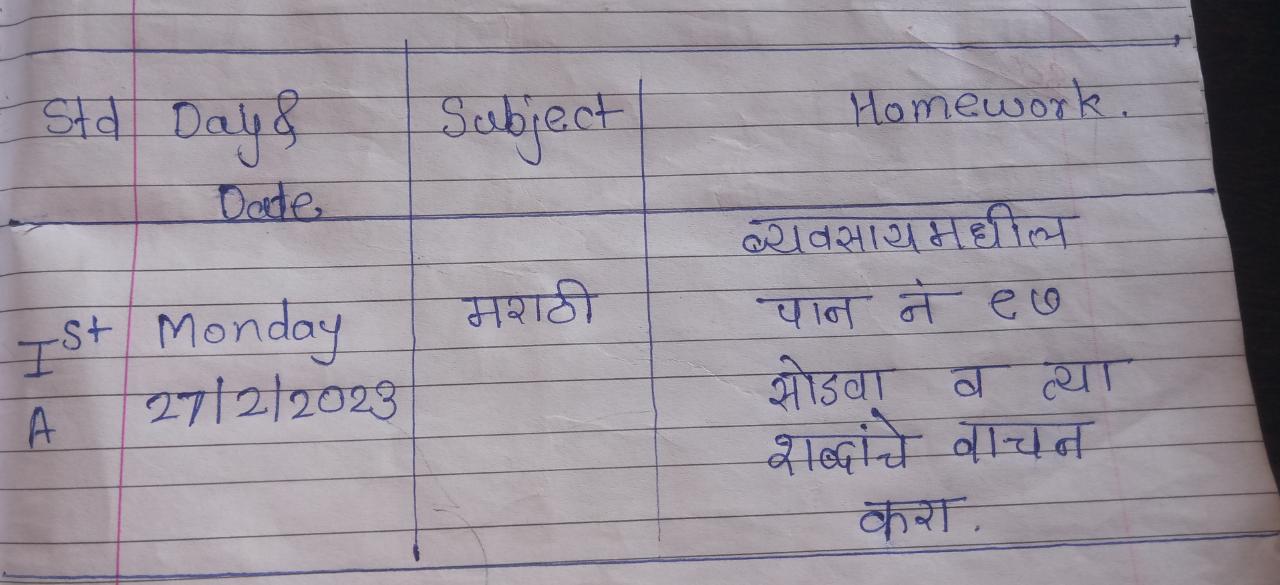 Std Day & Subject Homework.
Date
व्यवसायमधील
पान नं ९७
Ist Monday मराठी
सोडवा व त्या
A 27/2/2023
शब्दांचे वाचन
करा.